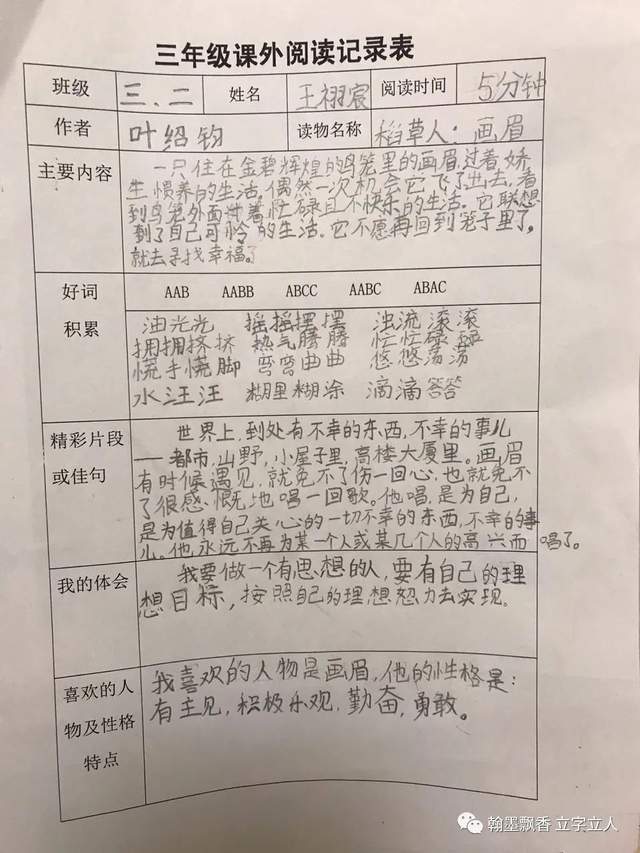 三年级课外阅读记录表
班级 三、二 姓名 王禤宸 阅读时间 5分钟
作者 叶绍钧 读物名称 稻草人·画眉
主要内容
一只住在金碧辉煌的鸟笼里的画眉,过着娇
生惯养的生活,偶然一次机会它飞了出去,看
到鸟笼外面世着忙碌且不快乐的生活。它联想
到了自己可怜的生活。它不愿再回到笼子里了。
就去寻找幸福了。
好词
积累
AAB AABB ABCC AABC ABAC
油光光 摇摇摆摆 浊流滚滚
拥拥挤挤 热气腾腾 忙忙碌碌
慌手慌脚 弯弯曲曲 悠悠荡荡
水汪汪 糊里糊涂 滴滴答答
精彩片段
或佳句
世界上,到处有不幸的东西,不幸的事儿
——都市,山野,小屋子里,高楼大厦里。画眉
有时候遇见,就免不了伤一回心,也就免不
了很感慨地唱一回歌。他唱,是为自己,
是为值得自己关心的一切不幸的东西,不幸的事
儿。他永远不再为某一个人或某几个人的高兴而唱了。
我的体会
我要做一个有思想的人,要有自己的理
想目标,按照自己的理想努力去实现。
喜欢的人
物及性格
特点
我喜欢的人物是画眉,他的性格是:
有主见,积极乐观,勤奋,勇敢。
翰墨飘香 立字立人